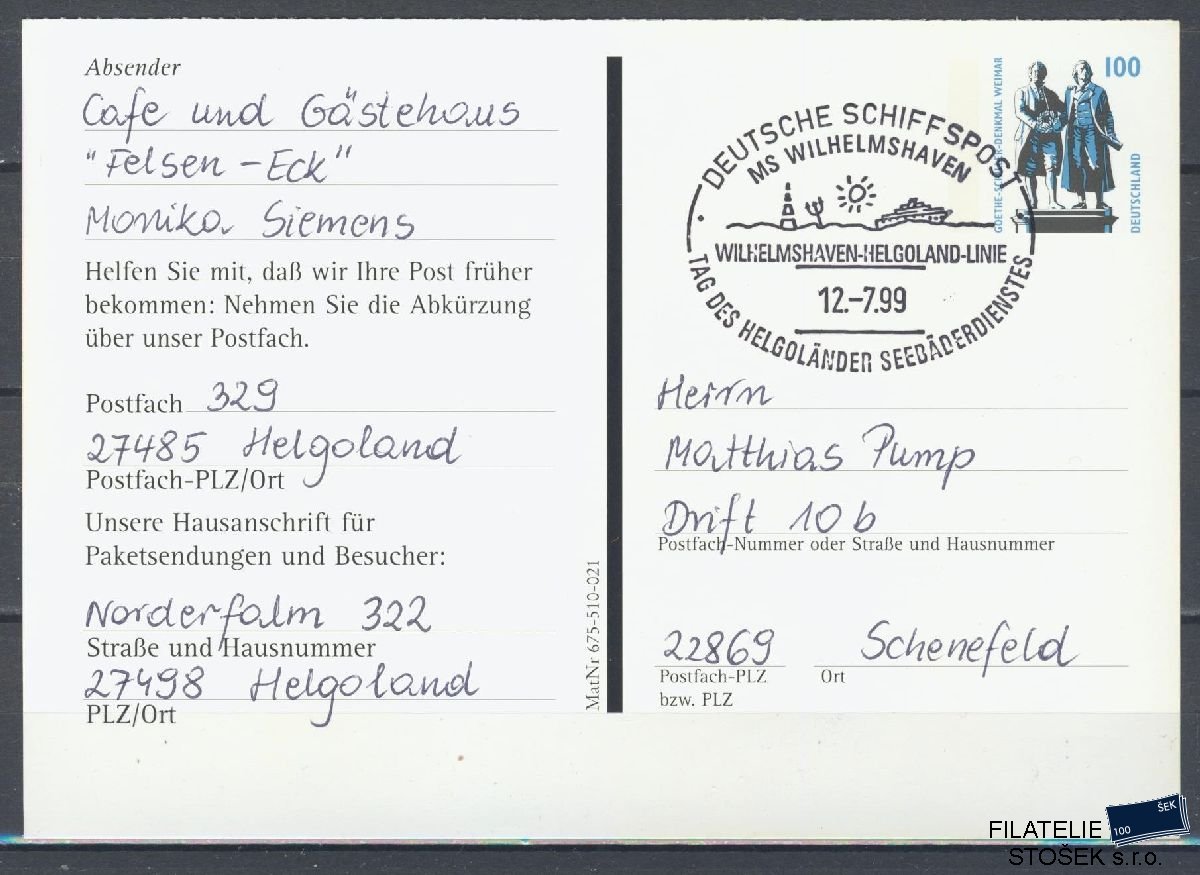 Absender
Cafe und Gästehaus
"Felsen-Eck"
Monika Siemens
Helfen Sie mit, daß wir Ihre Post früher
bekommen: Nehmen Sie die Abkürzung
über unser Postfach.
Postfach 329
27485 Helgoland
Postfach-PLZ/Ort
Unsere Hausanschrift für
Paketsendungen und Besucher:
Norderfalm 322
Straße und Hausnummer
27498 Helgoland
PLZ/Ort
MatNr 675-510-021
DEUTSCHE SCHIFFSPOST
MS WILHELMSHAVEN
WILHELMSHAVEN-HELGOLAND-LINIE
12.-7.99
TAG DES HELGOLÄNDER SEEBÄDERDIENSTES
GOETHE-SCHILLER-DENKMAL WEIMAR
100
DEUTSCHLAND
Herrn
Matthias Pump
Drift 10b
Postfach-Nummer oder Straße und Hausnummer
22869 Schenefeld
Postfach-PLZ Ort
bzw. PLZ
FILATELIE
STOŠEK s.r.o.
100
ŠEK